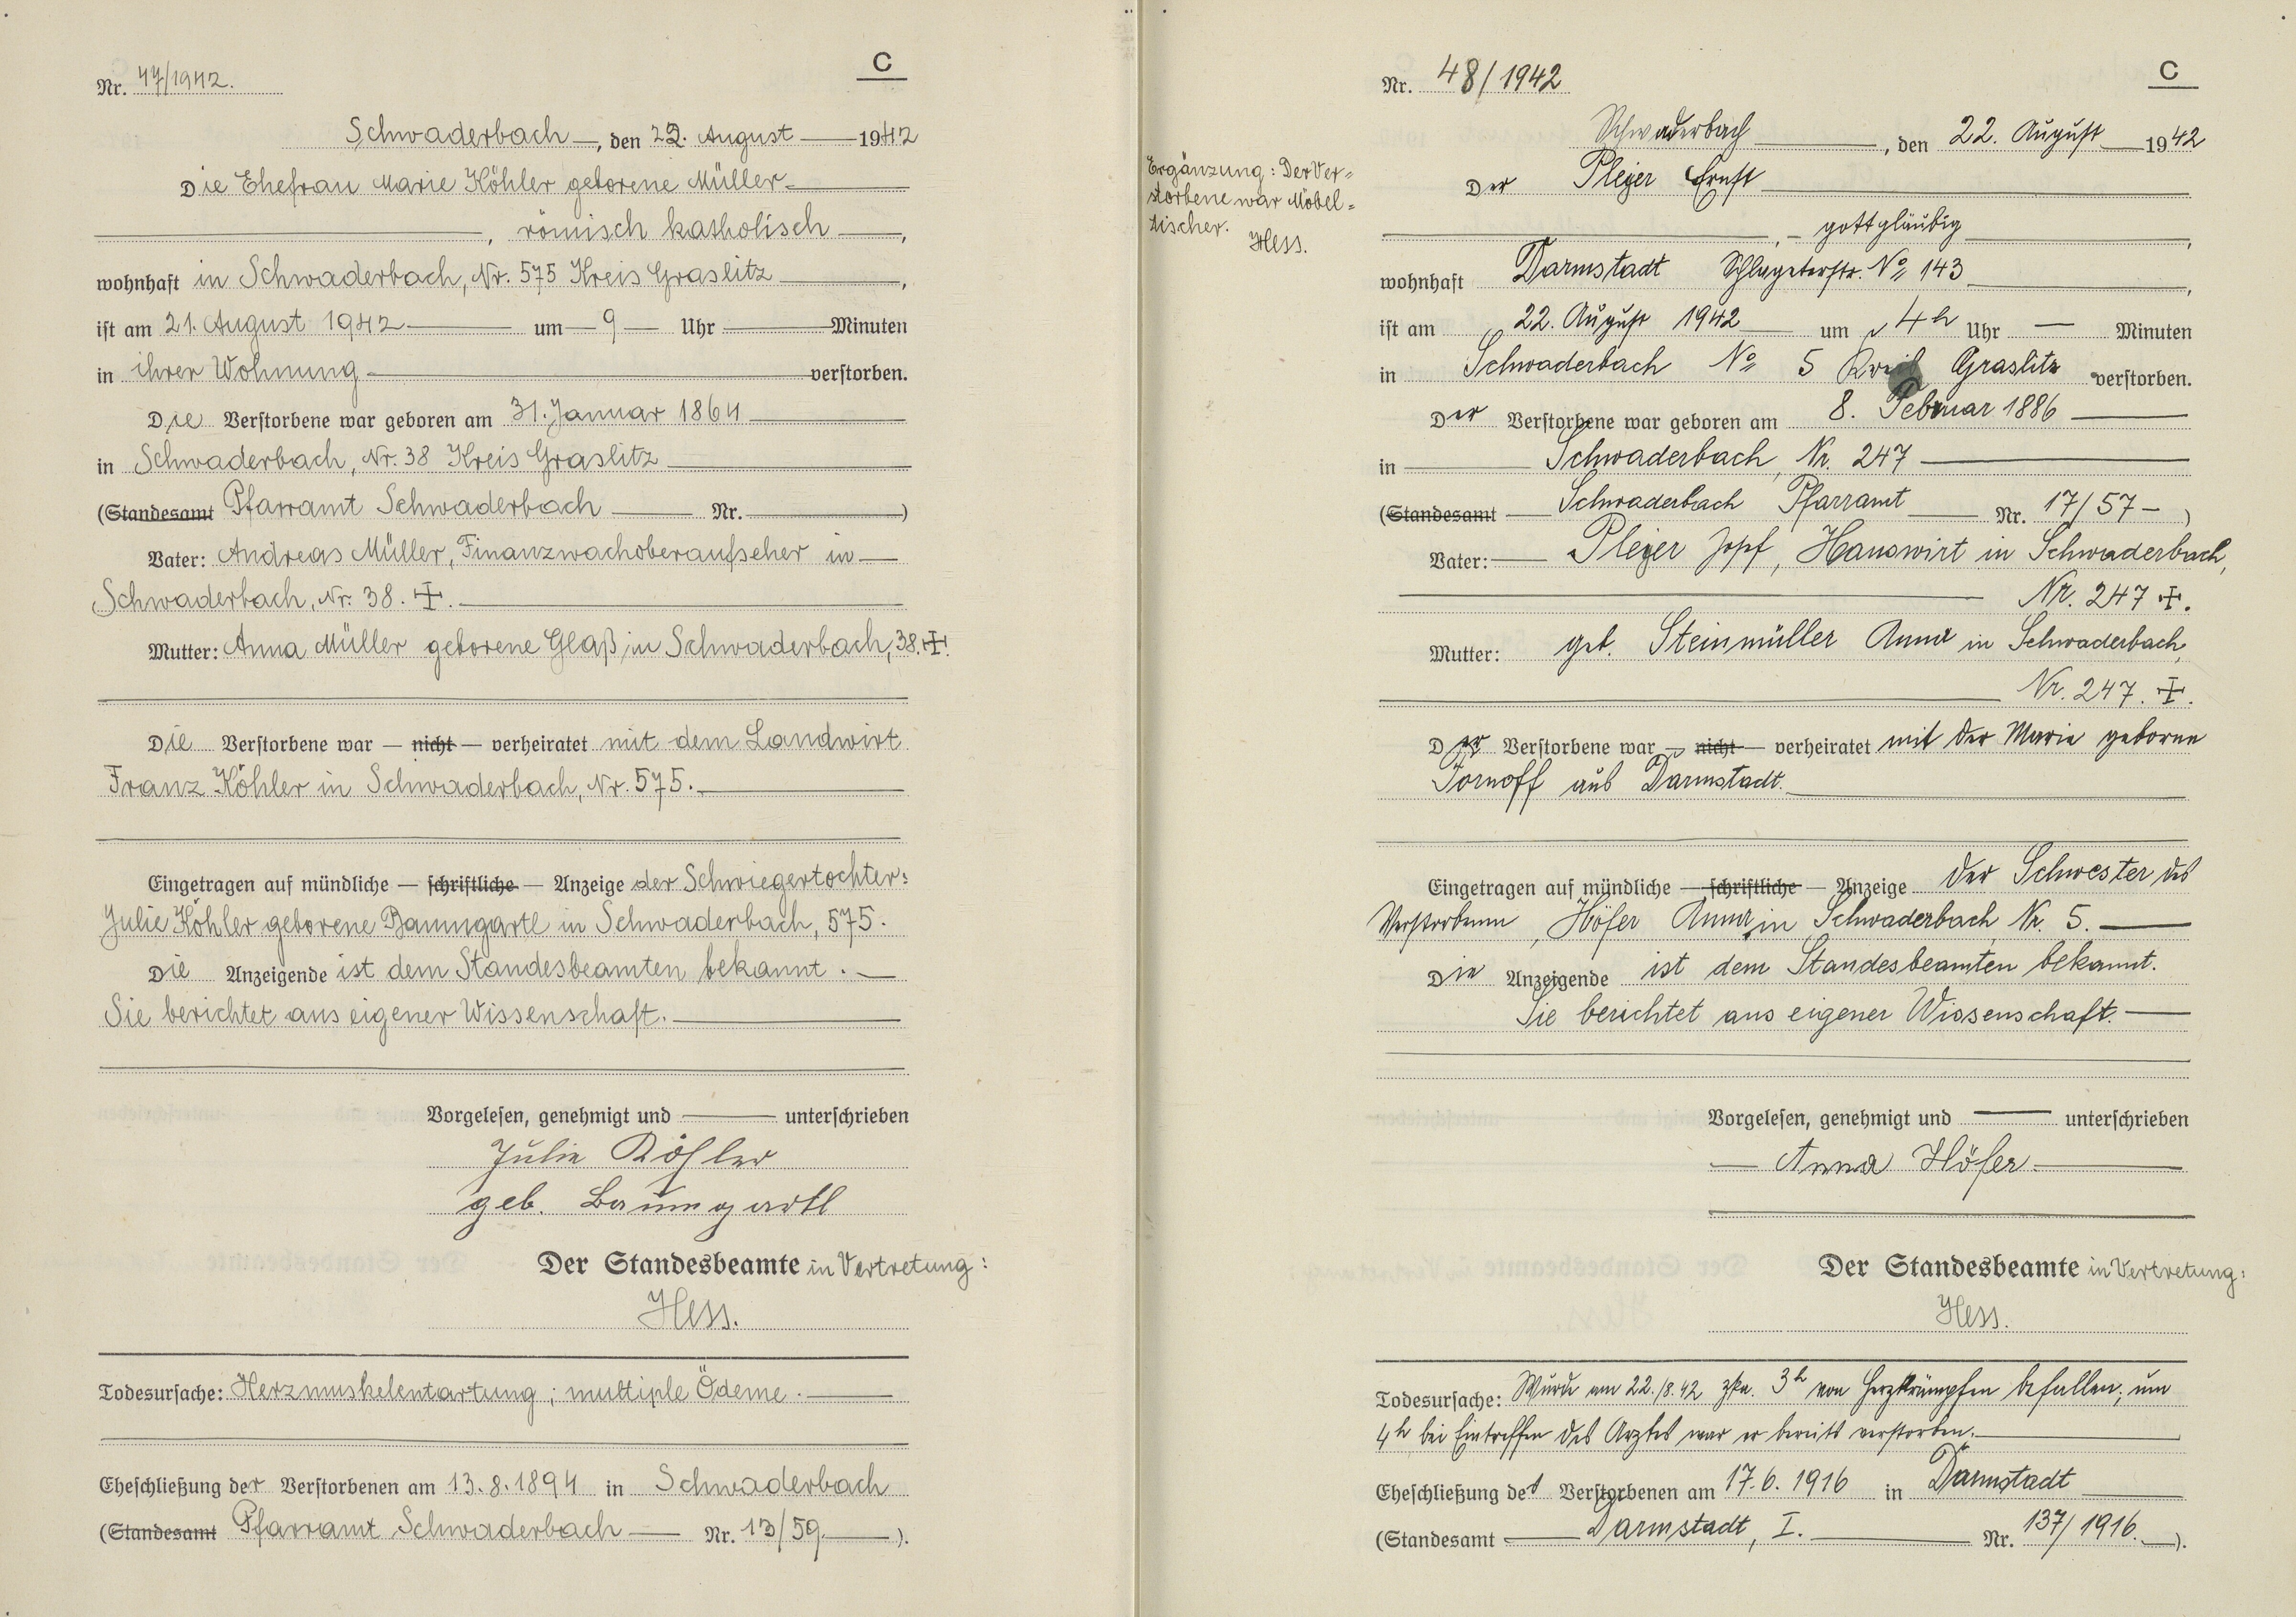 C
Nr. 47/1942.
Schwaderbach, den 22. August 1942
Die Ehefrau Marie Köhler geborene Müller
, römisch katholisch ,
wohnhaft in Schwaderbach, Nr. 575 Kreis Graslitz ,
ist am 21. August 1942 um 9 Uhr Minuten
in ihrer Wohnung verstorben.
Die Verstorbene war geboren am 31. Januar 1864
in Schwaderbach, Nr. 38 Kreis Graslitz
(Standesamt Pfarramt Schwaderbach Nr. )
Vater: Andreas Müller, Finanzwachoberaufseher in
Schwaderbach, Nr. 38. ✝.
Mutter: Anna Müller geborene Glaß, in Schwaderbach, 38. ✝.
Die Verstorbene war — nicht — verheiratet mit dem Landwirt
Franz Köhler in Schwaderbach, Nr. 575.
Eingetragen auf mündliche — schriftliche — Anzeige der Schwiegertochter:
Julie Köhler geborene Baumgartl in Schwaderbach, 575.
Die Anzeigende ist dem Standesbeamten bekannt.
Sie berichtet aus eigener Wissenschaft.
Vorgelesen, genehmigt und unterschrieben
Julie Köhler
geb. Baumgartl
Der Standesbeamte in Vertretung:
Hess.
Todesursache: Herzmuskelentartung; multiple Ödeme.
Eheschließung der Verstorbenen am 13.8.1894 in Schwaderbach
(Standesamt Pfarramt Schwaderbach Nr. 13/59 ).
Ergänzung: Der Ver=
storbene war Möbel=
tischer.
Hess.
C
Nr. 48/1942
Schwaderbach, den 22. August 1942
Der Pleyer Ernst
, gottgläubig ,
wohnhaft Darmstadt Schlageterstr. No 143 ,
ist am 22. August 1942 um 4h Uhr — Minuten
in Schwaderbach No 5 Kreis Graslitz verstorben.
Der Verstorbene war geboren am 8. Februar 1886
in Schwaderbach, Nr. 247
(Standesamt Schwaderbach Pfarramt Nr. 17/57 )
Vater: Pleyer Josef, Hauswirt in Schwaderbach,
Nr. 247 ✝.
Mutter: geb. Steinmüller Anna in Schwaderbach,
Nr. 247. ✝.
Der Verstorbene war — nicht — verheiratet mit der Marie geborne
Tornoff aus Darmstadt.
Eingetragen auf mündliche — schriftliche — Anzeige der Schwester des
Verstorbenen, Höfer Anna, in Schwaderbach Nr. 5.
Die Anzeigende ist dem Standesbeamten bekannt.
Sie berichtet aus eigener Wissenschaft.
Vorgelesen, genehmigt und unterschrieben
Anna Höfer
Der Standesbeamte in Vertretung:
Hess.
Todesursache: Wurde am 22./8.42 zka. 3h von Herzkrämpfen befallen; um
4h bei Eintreffen des Arztes war er bereits verstorben.
Eheschließung des Verstorbenen am 17.6.1916 in Darmstadt
(Standesamt Darmstadt, I. Nr. 137/1916. ).